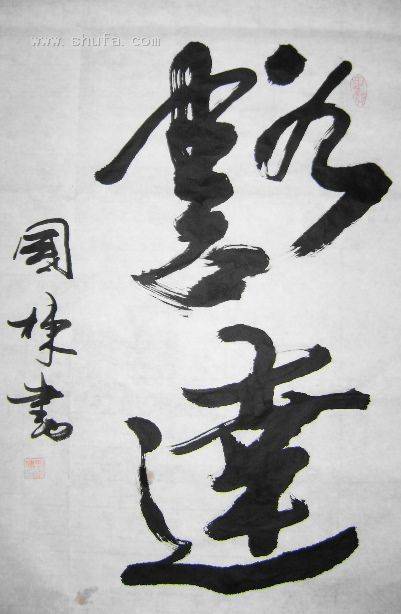 豁達
國棟書
www.shufa.com